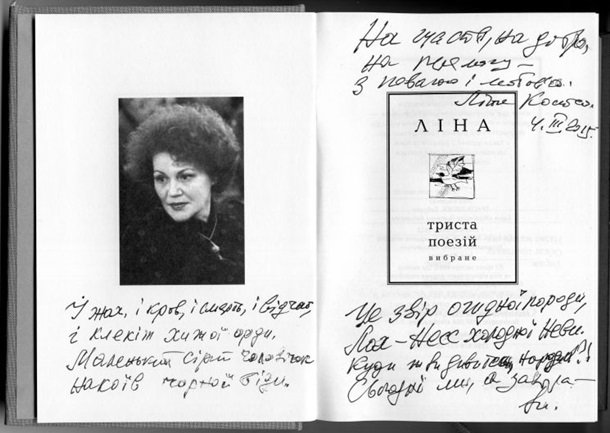 На щастя, на добро,
на перемогу –
з повагою і любов'ю.
Ліна Костенко
4. III 2015
ЛІНА
триста
поезій
вибране
І жах, і кров, і смерть, і відчай,
і клекіт хижої орди.
Маленький сірий чоловічок
накоїв чорної біди.
Це звір огидної породи,
Лох-Несс холодної Неви.
Куди ж ви дивитесь, народи?!
Сьогодні ми, а завтра –
ви.